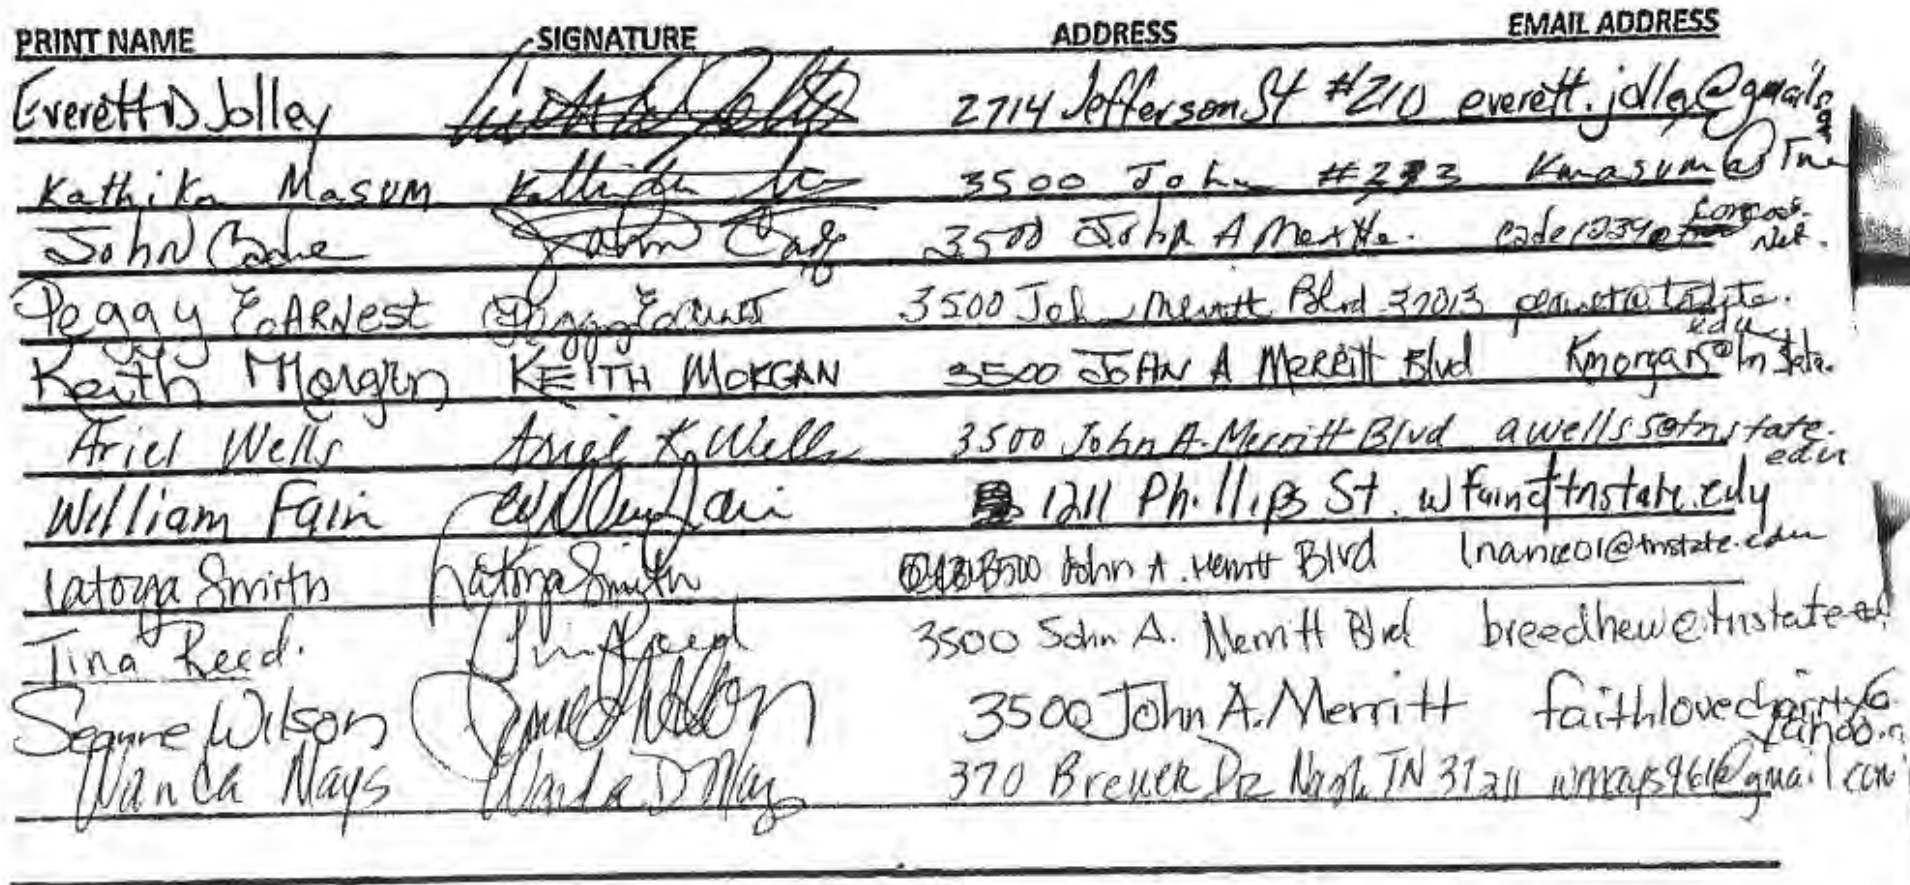 PRINT NAME SIGNATURE ADDRESS EMAIL ADDRESS
Everett D Jolley 2714 Jefferson St #210 everett.jolley@gmail.
Kathika Masum 3500 John Kmasum@Tn
John Cade John Cade 3500 John A Merritt. cade1234@ comcast.
Net.
Peggy EARNest Peggy Earnest 3500 John Merritt Blvd 37013
edu
Keith Morgan KEITH MORGAN 3500 JOHN A MERRITT Blvd Kmorgan@tnstate.
Ariel Wells Ariel K. Wells 3500 John A. Merritt Blvd awells5@tnstate.
edu
William Fain 1211 Phillips St. wfain@tnstate.edu
Latoya Smith Latoya Smith 3500 John A. Merritt Blvd @tnstate.edu
Tina Reed. Tina Reed 3500 John A. Merritt Blvd breedhew@tnstate.ed
Wilson 3500 John A. Merritt faithlovecharity6
yahoo.
Wanda Mays Wanda D Mays 370 Brewer Dr Nash, TN 37211 wmays961@gmail.com